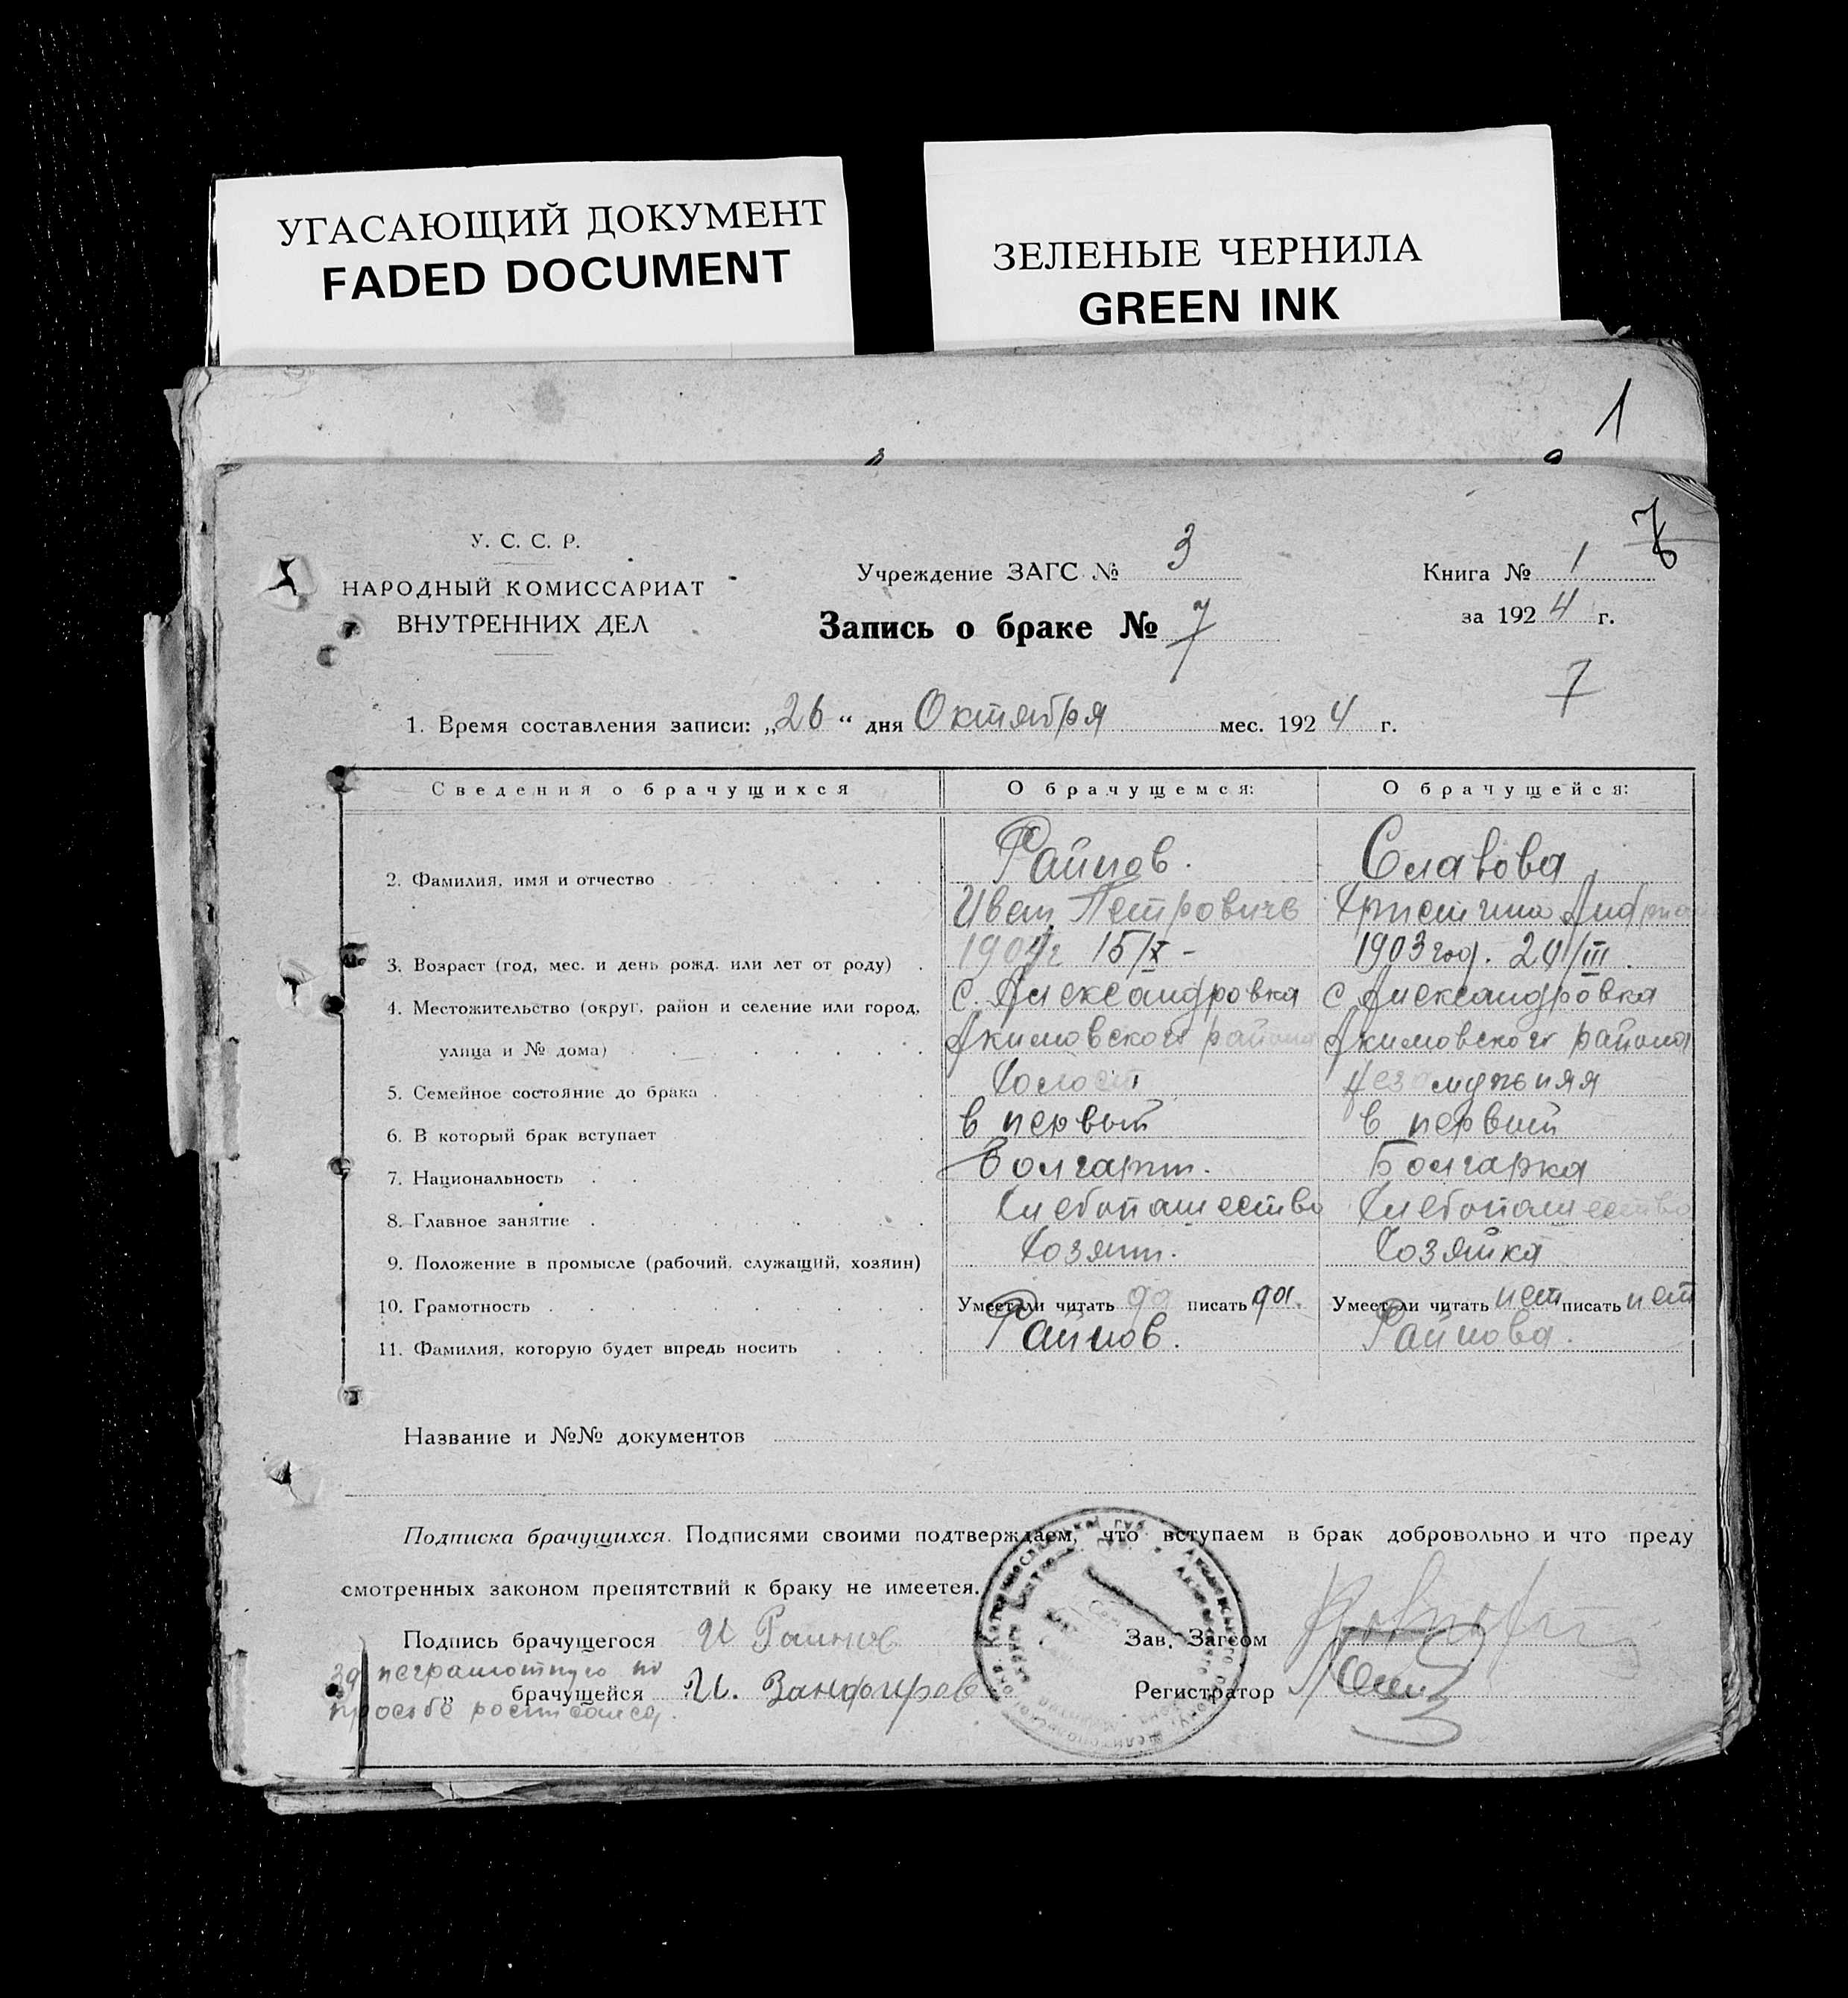 УГАСАЮЩИЙ ДОКУМЕНТ
FADED DOCUMENT
ЗЕЛЕНЫЕ ЧЕРНИЛА
GREEN INK
1
У. С. С. Р.
НАРОДНЫЙ КОМИССАРИАТ
ВНУТРЕННИХ ДЕЛ
Учреждение ЗАГС № 3
Запись о браке № 7
Книга № 1
за 1924 г.
7
1. Время составления записи: „26“ дня Октября мес. 1924 г.
Сведения о брачущихся О брачущемся: О брачущейся:
2. Фамилия, имя и отчество Райнов. Славова
Иван Петровичъ Христина
3. Возраст (год, мес. и день рожд. или лет от роду) 1904г 15/X - 1903 год. 20/III.
4. Местожительство (округ, район и селение или город, с. Александровка с Александровка
улица и № дома) Акимовского района Акимовского района
5. Семейное состояние до брака Холост Незамужняя
6. В который брак вступает в первый в первый
7. Национальность Болгарин. Болгарка
8. Главное занятие Хлебопашество Хлебопашество
9. Положение в промысле (рабочий, служащий, хозяин) Хозяин. Хозяйка
10. Грамотность Умеет ли читать да писать да. Умеет ли читать нет писать нет
11. Фамилия, которую будет впредь носить Райнов. Райнова.
Название и №№ документов
Подписка брачущихся. Подписями своими подтверждаем, что вступаем в брак добровольно и что преду
смотренных законом препятствий к браку не имеется.
Подпись брачущегося И Райнов Зав. Загсом
За неграмотную по
„ брачущейся И. Занфиров Регистратор
просьбе расписался.